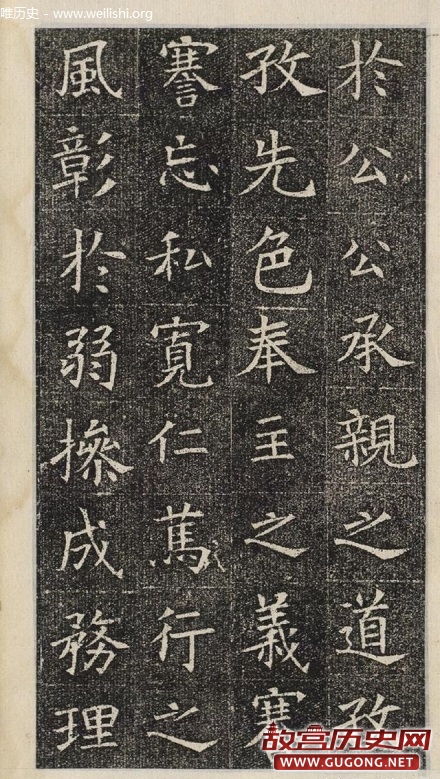 唯历史 - www.weilishi.org
於公公承親之道孜
孜先色奉主之義謇
謇忘私寬仁篤行之
風彰於弱操成務理
故宫历史网
WWW.GUGONG.NET